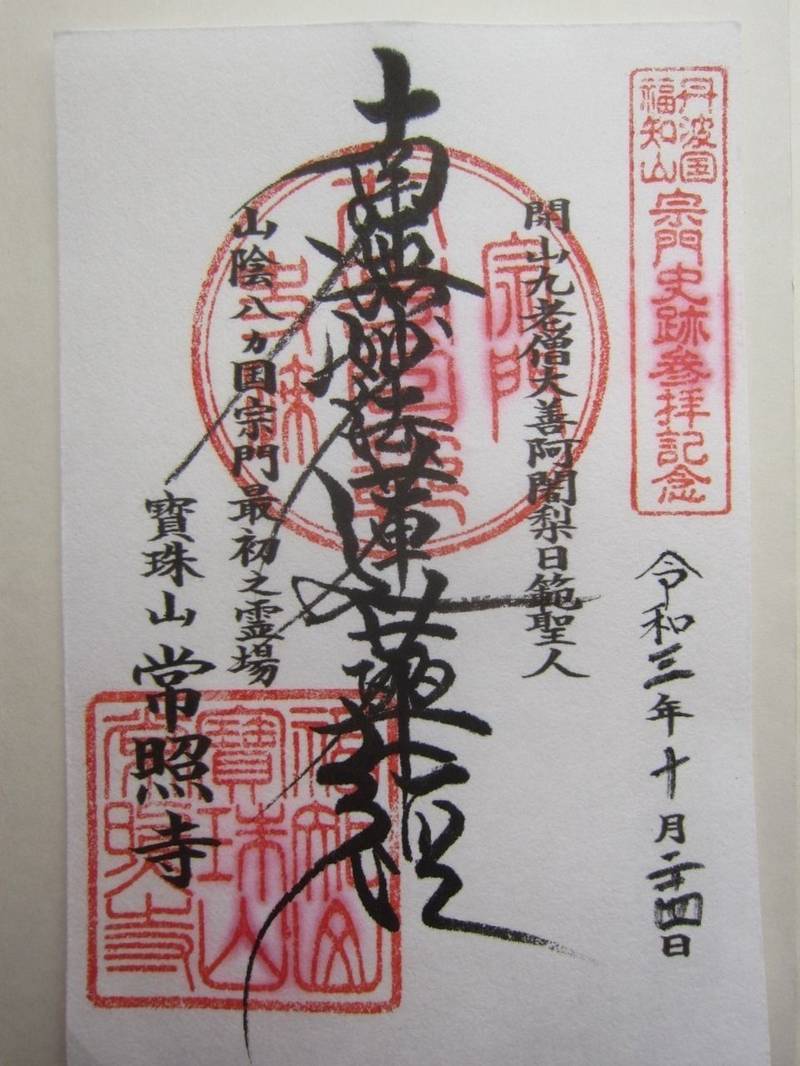 丹波国
福知山
宗門史跡参拝記念
令和三年十月二十四日
開山九老僧大善阿闍梨日範聖人
南無妙法蓮華経
山陰八ヵ国宗門最初之霊場
寳珠山 常照寺
福知山
寳珠山
常照寺